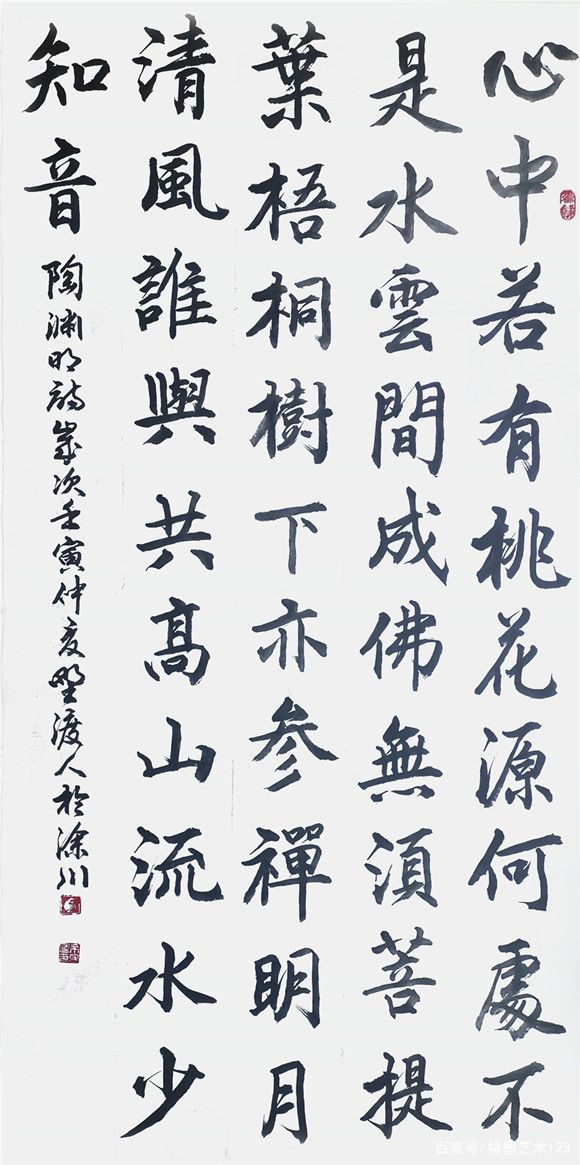 心中若有桃花源何處不
是水雲間成佛無須菩提
葉梧桐樹下亦參禪明月
清風誰與共高山流水少
知音
陶淵明詩歲次壬寅仲夏野渡人於滁川
百家号/楮墨艺术123